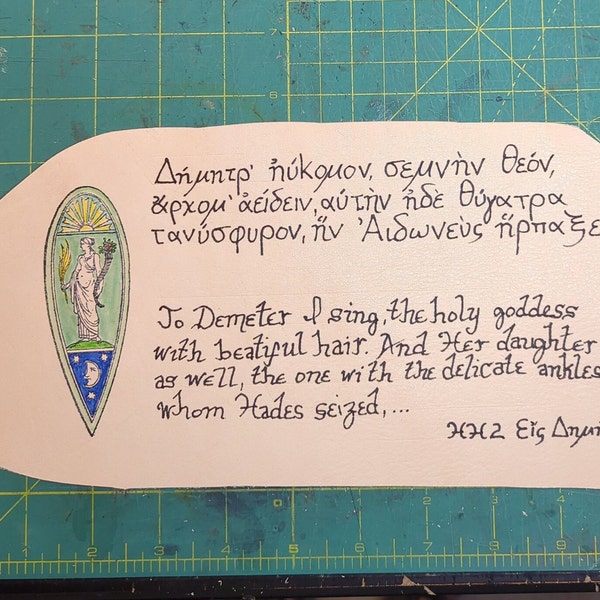 Δήμητρ' ἠύκομον, σεμνὴν θεόν,
ἄρχομ' ἀείδειν, αὐτὴν ἠδὲ θύγατρα
τανύσφυρον, ἣν Ἀιδωνεὺς ἥρπαξε
To Demeter I sing, the holy goddess
with beatiful hair. And Her daughter
as well, the one with the delicate ankles
whom Hades seized,...
HH2 Εἰς Δημή
7
7
1
2
3
4
5
6
7
8
9